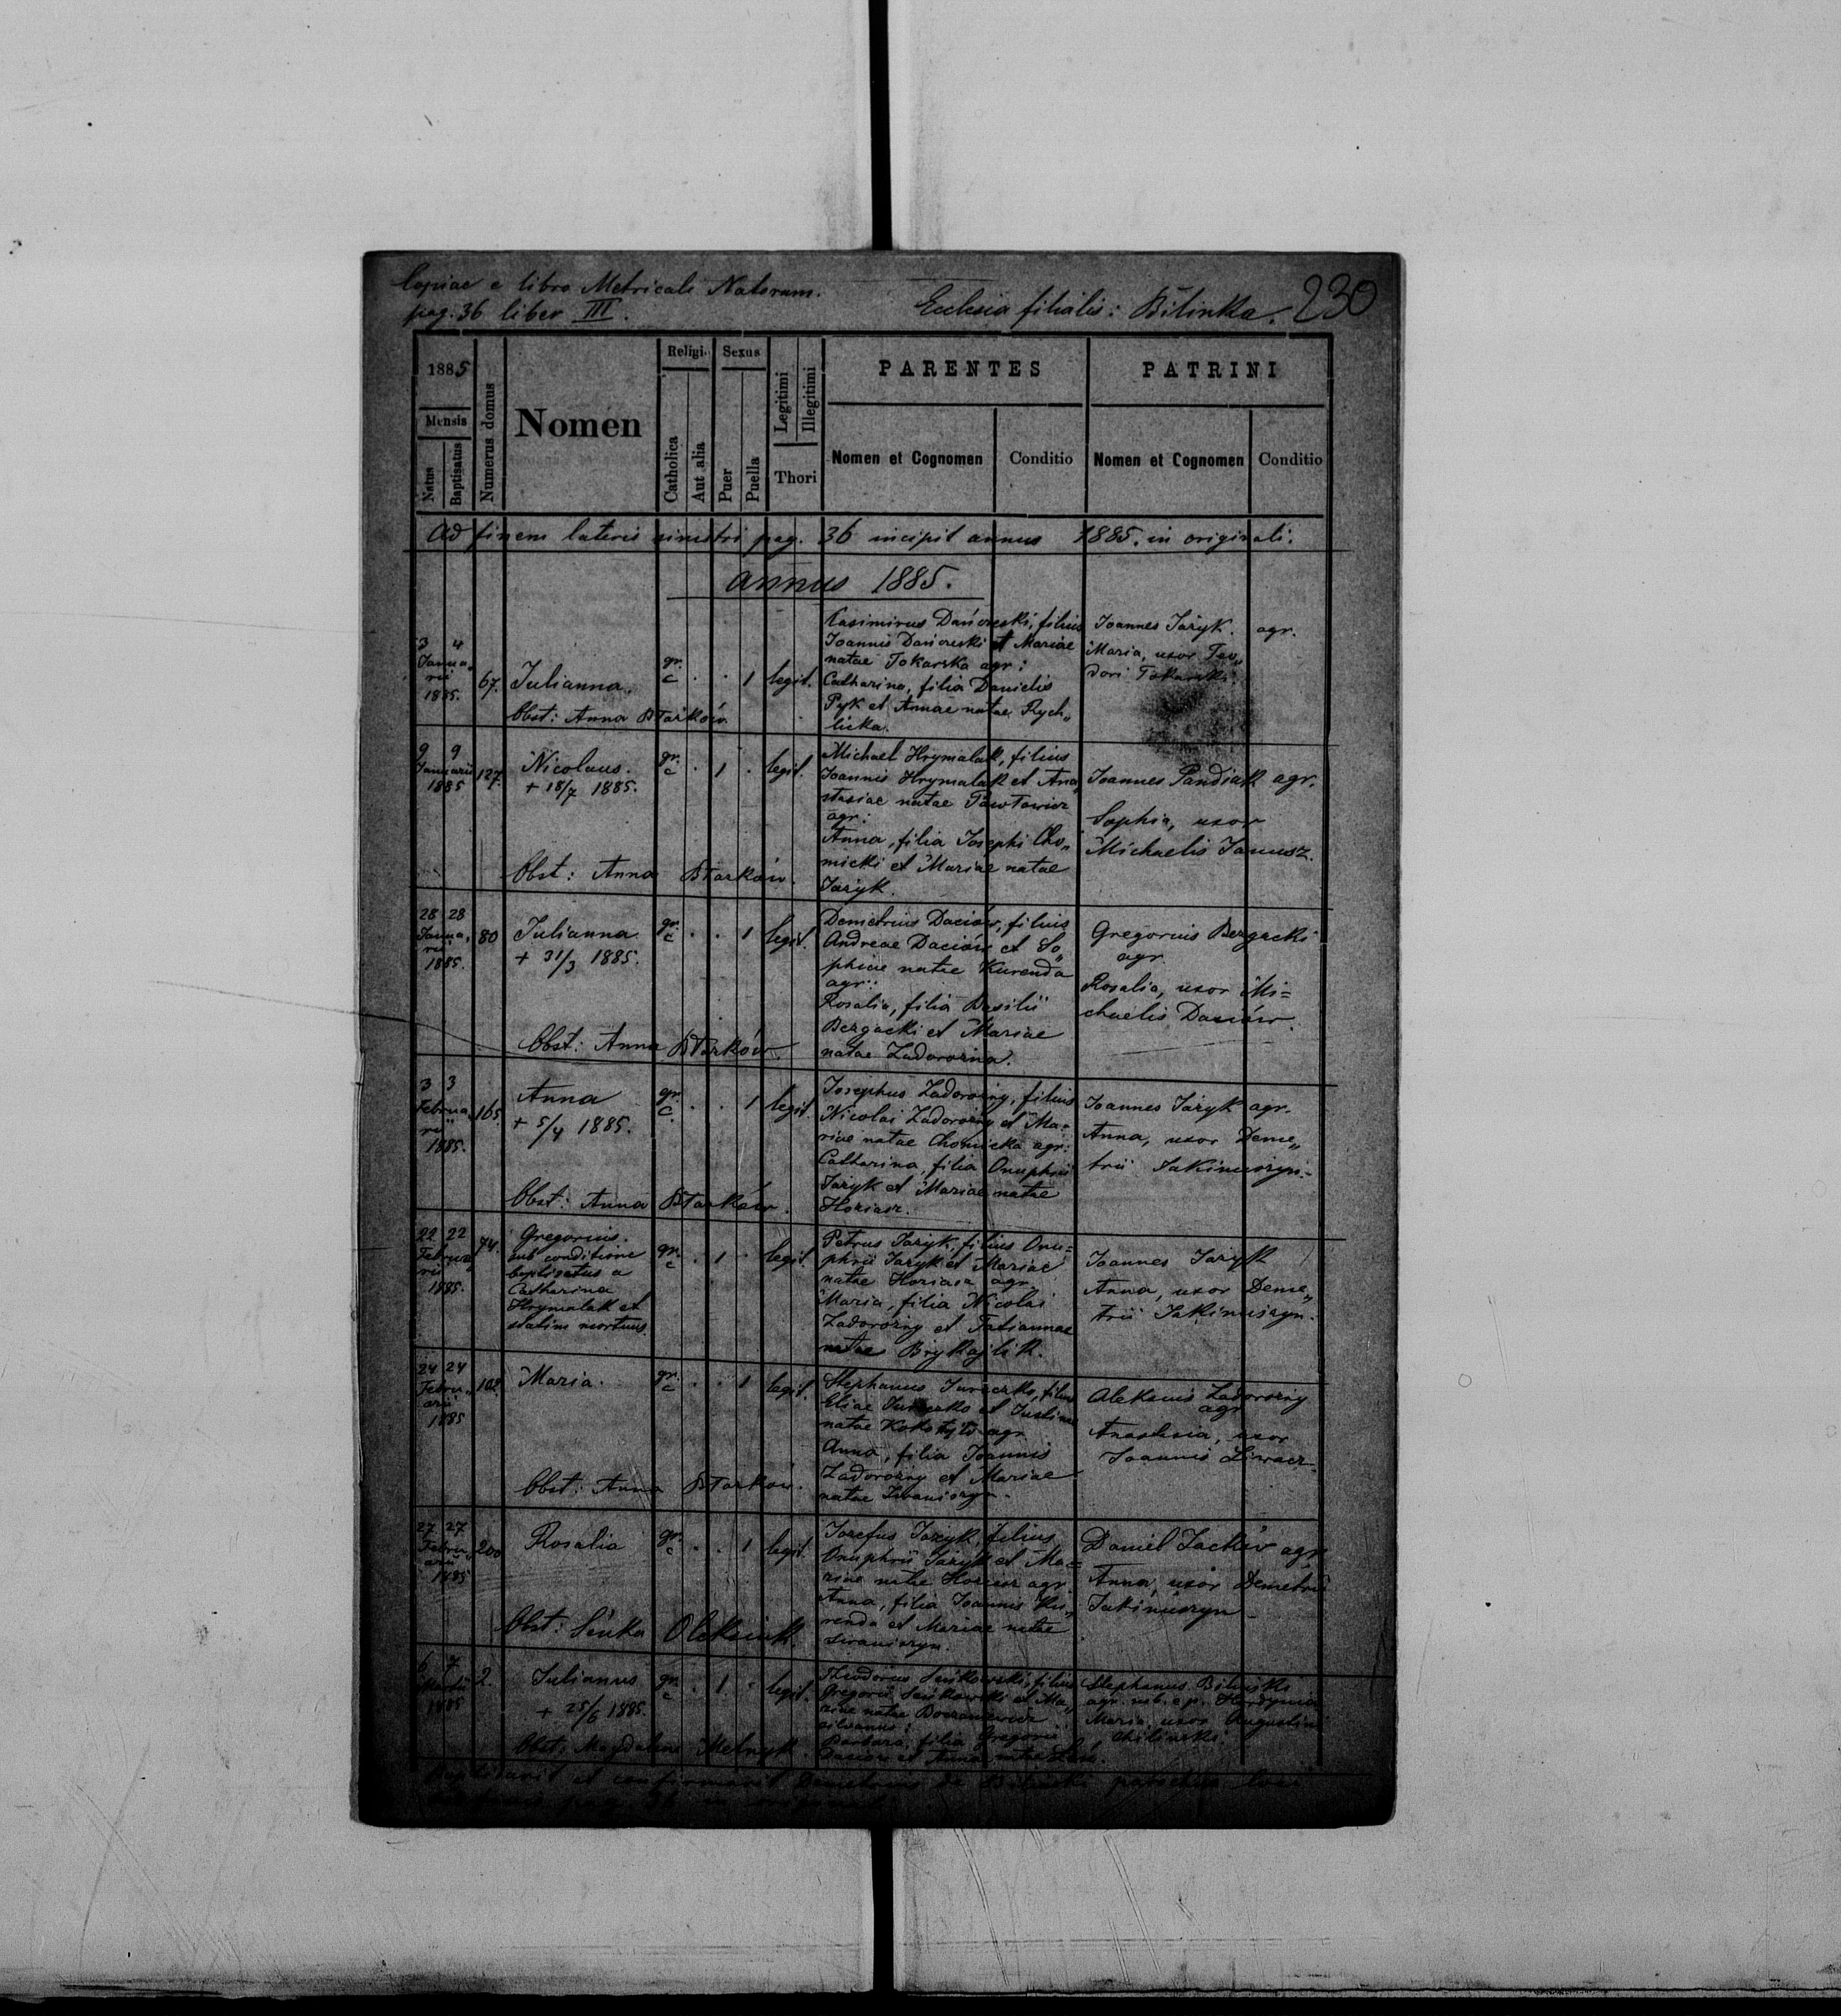 Copiae e libro Metricali Natorum.
pag. 36 liber III.
Ecclesia filialis: Bilinka.
230
1885
Mensis
Natus
Baptisatus
Numerus domus
Nomen
Religi.
Catholica
Aut alia
Sexus
Puer
Puella
Legitimi
Illegitimi
Thori
PARENTES
Nomen et Cognomen
Conditio
PATRINI
Nomen et Cognomen
Conditio
Ad finem lateris sinistri pag. 36 incipit annus 1885. in originali.
annus 1885.
3 4
Janua„
rii
1885.
67.
Julianna.
Obst: Anna
gr.
c
. . 1 legit.
Casimirus Dańczeski, filius
Joannis Dańczeski et Mariae
natae Tokarska agr:
Catharina, filia Danielis
Pyk et Annae natae Rych„
licka.
Joannes Jaryk. agr.
Maria, uxor Teo„
dori Tokarski.
9 9
Januarii
1885
127.
Nicolaus.
+ 18/7 1885.
Obst: Anna
gr.
c
. 1 . legit.
Michael Hrymalak, filius
Joannis Hrymalak et Ana„
stasiae natae Pawłowicz
agr:
Anna, filia Josephi Cho„
micki et Mariae natae
Jaryk.
Joannes Pandiak agr.
Sophia, uxor
Michaelis Janusz.
28 28
Janua„
rii
1885.
80
Julianna
+ 31/3 1885.
Obst: Anna
gr.
c
. . 1 legit.
Demetrius Daciów, filius
Andreae Daciów et So„
phiae natae Kurenda
agr:
Rosalia, filia Basilii
Bezgacki et Mariae
natae Zadorozna.
Gregorius Bezgacki
agr.
Rosalia, uxor Mi=
chaelis Daciów.
3 3
Februa„
rii
1885.
165.
Anna
+ 5/4 1885.
Obst: Anna
gr.
c
. . 1 legit.
Josephus Zadorożny, filius
Nicolai Zadorożny et Ma=
riae natae Chomicka agr:
Catharina, filia Onuphrii
Jaryk et Mariae natae
Horiacz.
Joannes Jaryk agr.
Anna, uxor Deme„
trii Jakimiszyn.
22 22
Februa„
rii
1885.
74.
Gregorius.
sub conditione
baptisatus a
Catharina
Hrymalak et
statim mortuus.
gr.
c
. 1 . legit.
Petrus Jaryk, filius Onu=
phrii Jaryk et Mariae
natae Horiacz agr.
Maria, filia Nicolai
Zadorożny et Tatiannae
natae Brykajlik.
Joannes Jaryk
Anna, uxor Deme„
trii Jakimiszyn.
24 24
Febru„
arii
1885
Maria.
Obst: Anna
gr.
c
. . 1 legit.
Stephanus Jureczko, filius
Eliae Jureczko et Justinae
natae agr
Anna, filia Joannis
Zadorożny et Mariae
natae Iwaniszyn.
Aleksius Zadorożny
agr
Anastasia, uxor
Joannis
27 27
Febru„
arii
1885
200
Rosalia
Obst: Senka Oleksiuk.
gr.
c
. . 1 legit.
Josefus Jaryk, filius
Onuphrii Jaryk et Ma=
riae natae Horiacz agr.
Anna, filia Joannis Ku„
renda et Mariae natae
Iwaniszyn.
Daniel Jackiv agr.
Anna, uxor Demetrii
Jakimiszyn
6 7
Martii
1885
2.
Julianus
+ 25/6 1885.
Obst: Magdalena Melnyk.
gr.
c
. 1 . legit.
Theodorus Sieńkowski, filius
Gregorii Sieńkowski et Ma„
riae natae
silvanus:
Barbara, filia Gregorii
et Anna natae
Stephanus Bilinski
agr.
Maria, uxor Augustini
Chilinski.
Baptisavit et confirmavit Demetrius de Bilinski parochus loci